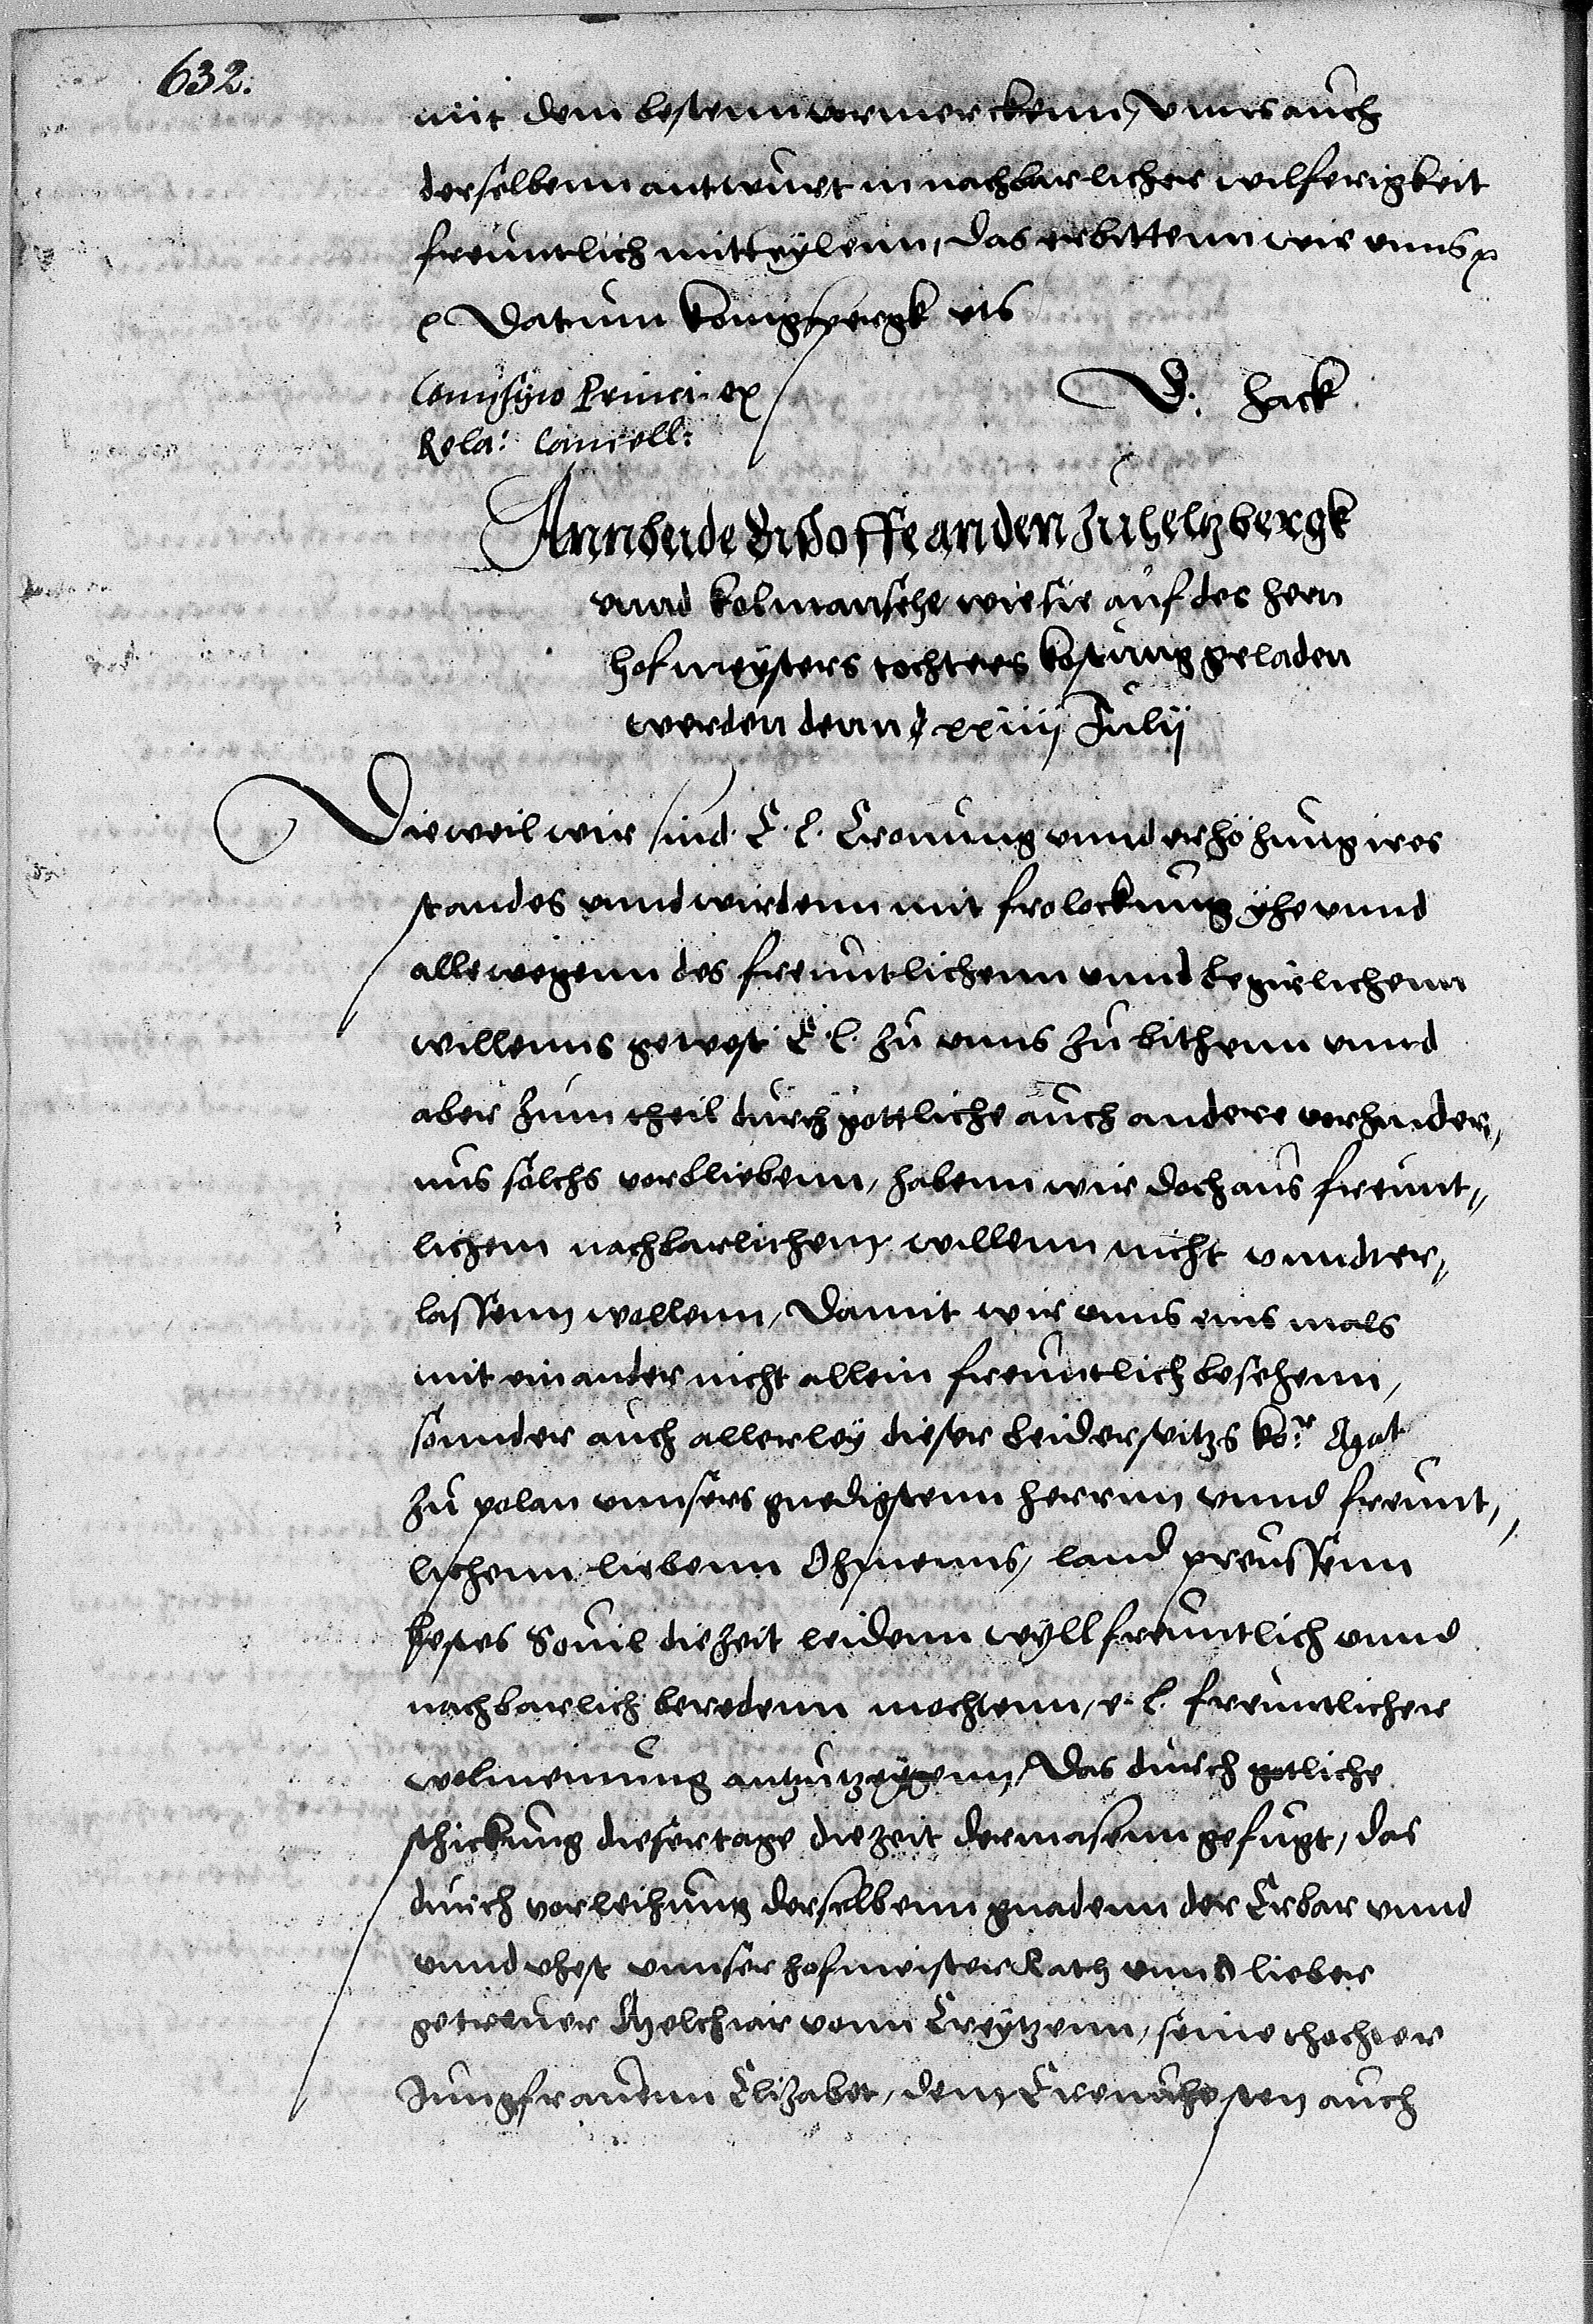 632.
mit dem bestenn vermerckenn, vnns auch
derselbenn antwurt in nachbarlicher wilferigkeit
freuntlich mitteylenn, das erbittenn wir vnns
Datum Konigspergk uts
Comissio Princi. ex
Rela: Cancell:
D: Hack
Ann beide Bischoffe an den zu helsbergk
vnnd Kolmansehe wie sie auf des hern
hofmeysters tochters kostung geladen
werden denn xxiiij Julij
Dieweil wir sind E. l. Cronung vnnd erhöhung ires
standes vnnd wirdenn mit frolockung yhe vnnd
allewegenn des freuntlichenn vnnd begirlichenn
willenns gewest E. l. zu vnns zu bithenn vnnd
aber zum theil durch gottliche auch andere verhinder,
nus solchs verbliebenn, habenn wir doch aus freunt,
lichem nachbarlichem willenn nicht vnnder,
lassenn wollenn, Damit wir vnns eins mals
mit einander nicht allein freuntlich besehenn,
sonnder auch allerley dieser beiderseitzs ko:r Mat
zu polan vnnsers gnedigstenn herrnn vnnd freunt,
lichenn liebenn Ohmenns, land preussenn
bestes Souil die zeit leidenn wyll freuntlich vnnd
nachbarlich beredenn mochtenn, e. l. freuntlicher
wolmeinung antzutzeygenn, Das durch gotliche
schickung dieser tage die zeit dermasenn gefugt, das
durch vorleihung derselbenn gnadenn der Erbar vnnd
vnnd vhest vnnser hofmeister Rath vnnd lieber
getreuer Melchiar vonn Creytzenn, seine thochter
Jungfrauenn Elizabet, dem Erenuhesten auch